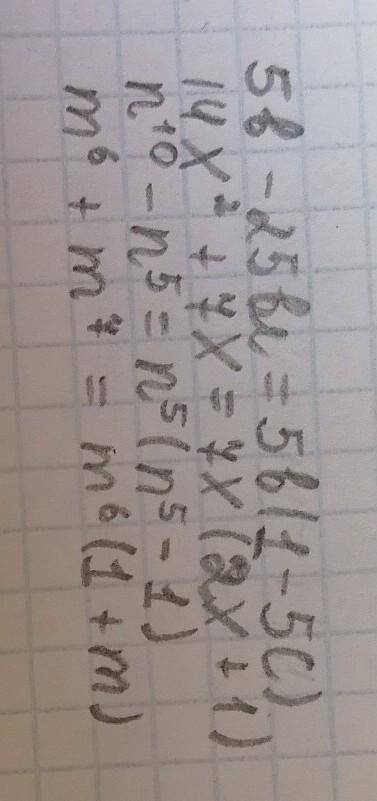 5b - 25bc = 5b(1 - 5c)
14x² + 7x = 7x(2x + 1)
n¹⁰ - n⁵ = n⁵(n⁵ - 1)
m⁶ + m⁷ = m⁶(1 + m)